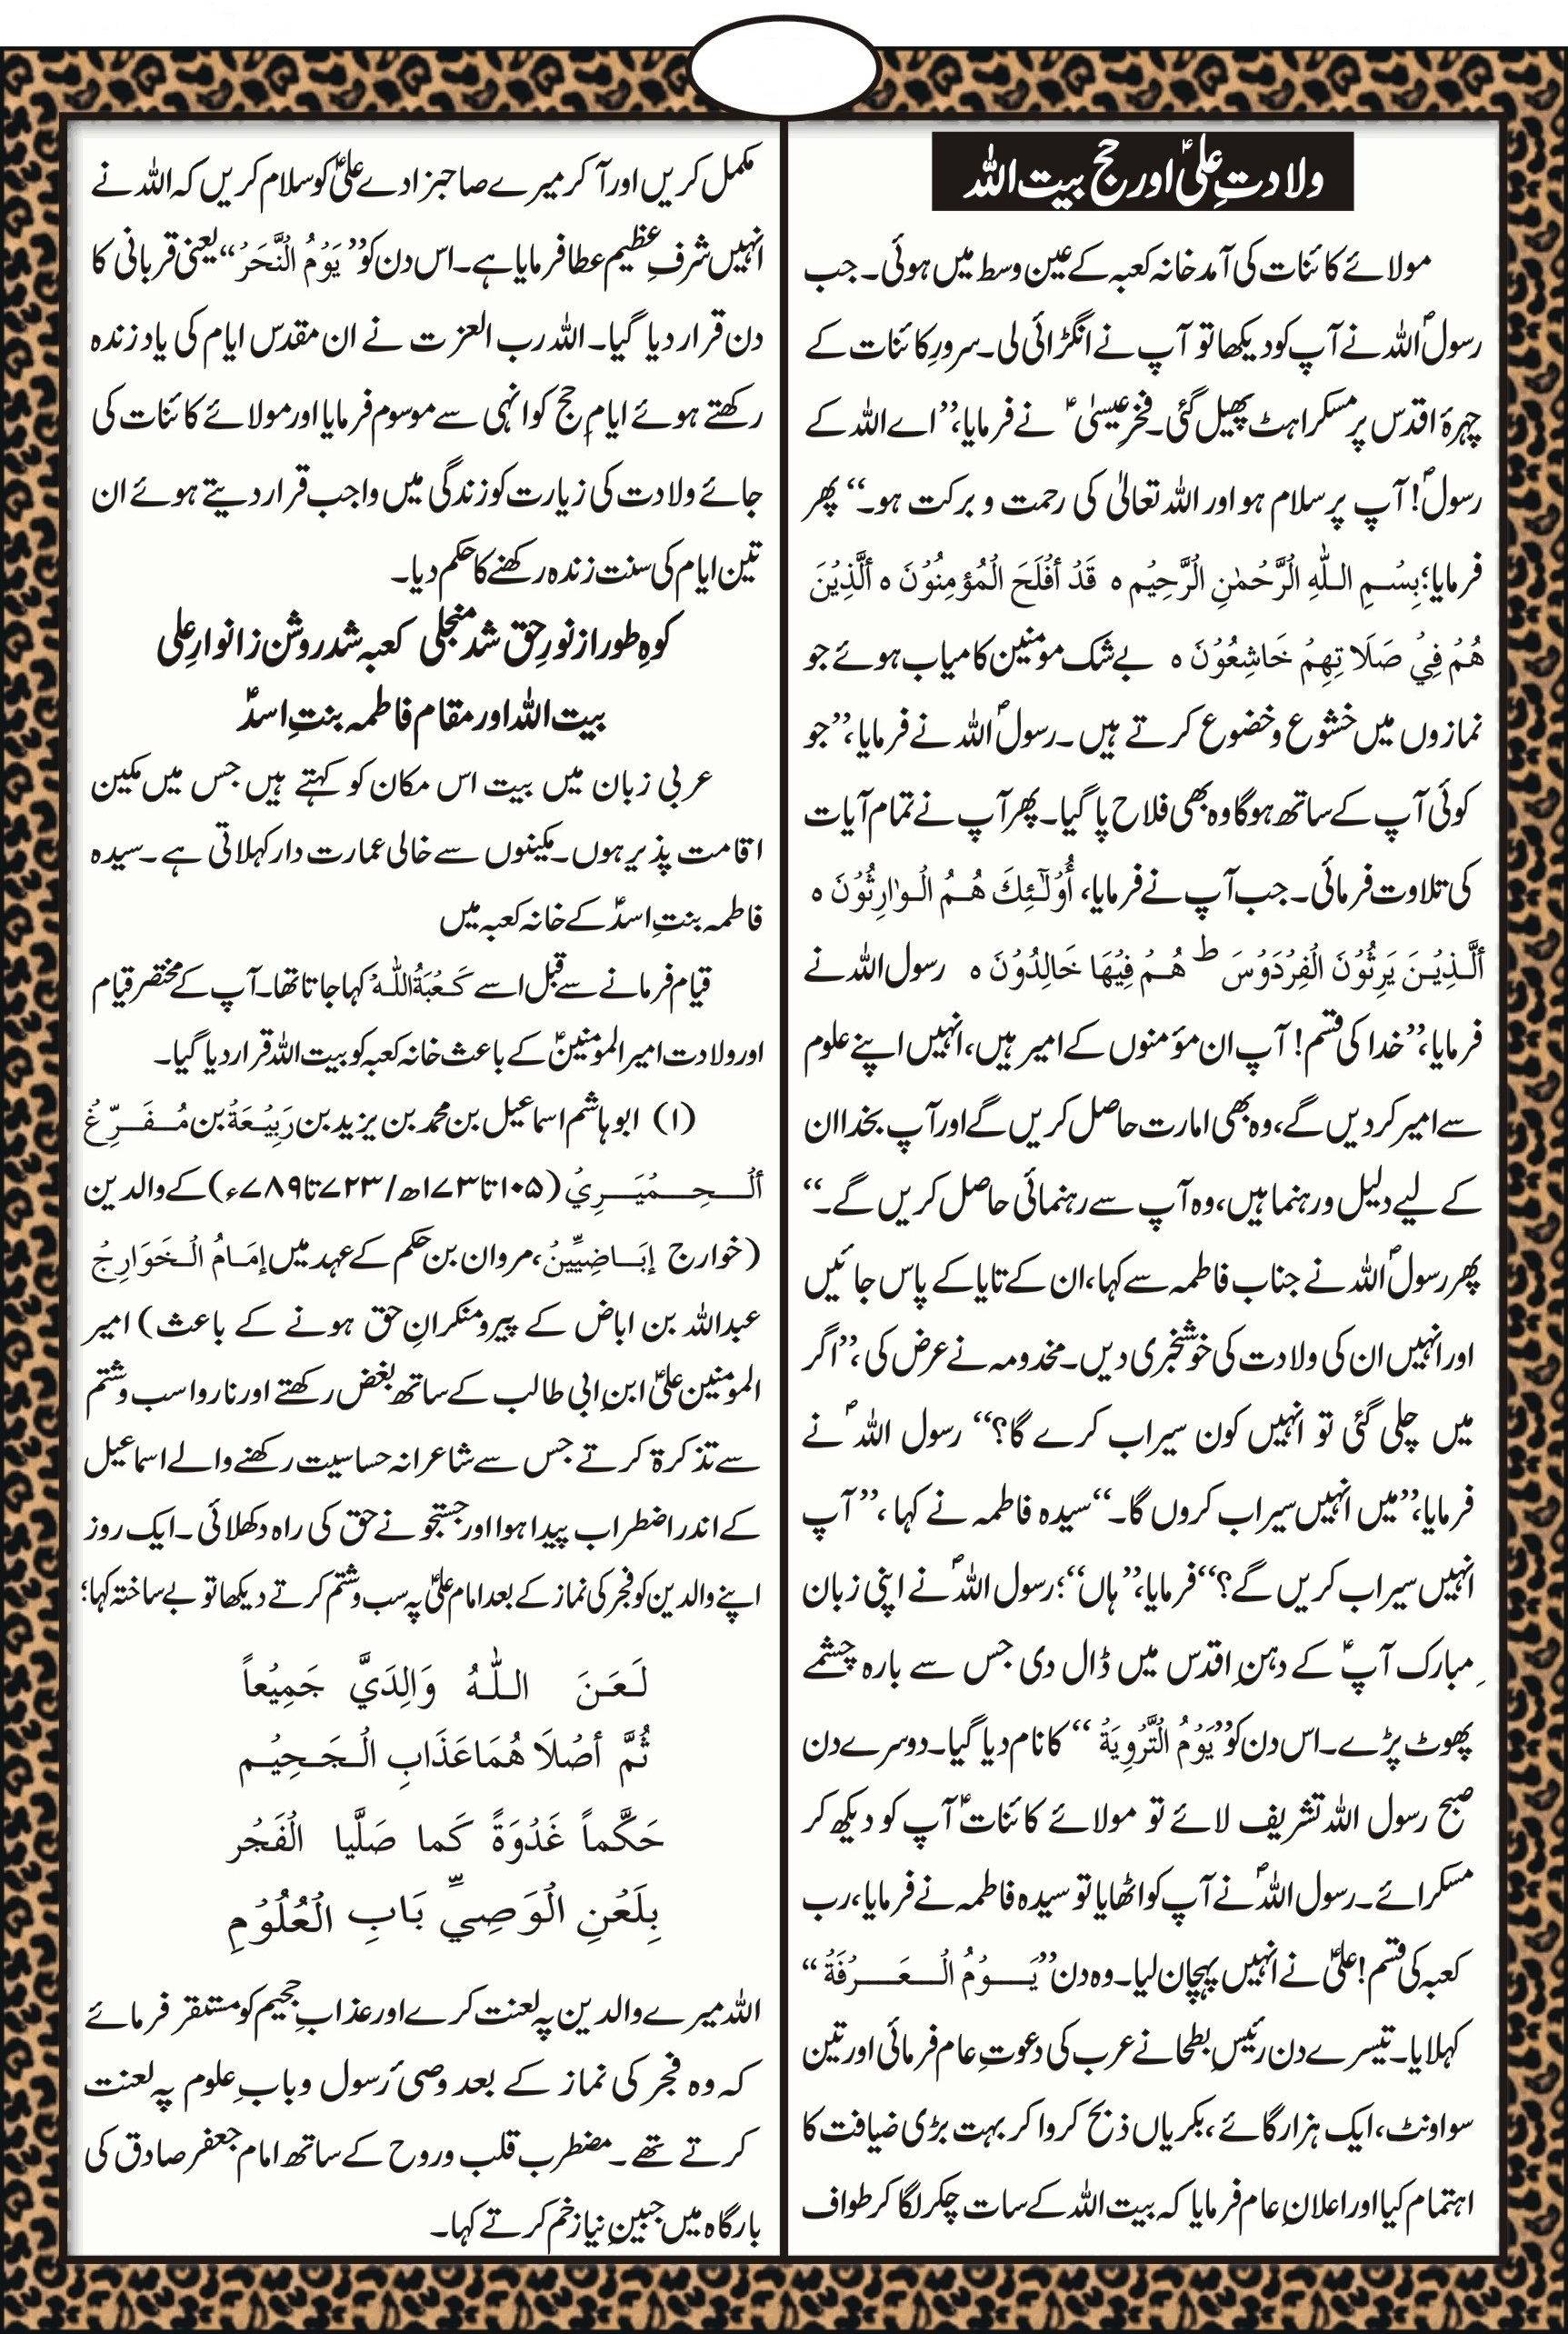 ولادتِ علیؑ اور حج بیت اللہ
مولائے کائنات کی آمد خانہ کعبہ کے عین وسط میں ہوئی۔ جب
رسولؐ اللہ نے آپ کو دیکھا تو آپ نے انگڑائی لی۔ سرورِ کائنات کے
چہرۂ اقدس پر مسکراہٹ پھیل گئی۔ فخرِ عیسیٰؑ نے فرمایا، ’’اے اللہ کے
رسولؐ! آپ پر سلام ہو اور اللہ تعالیٰ کی رحمت و برکت ہو۔‘‘ پھر
فرمایا؛ بِسْمِ اللّٰهِ الْرَّحْمٰنِ الْرَّحِيْمِ ہ قَدْ أَفْلَحَ الْمُؤمِنُوْنَ ہ ألَّذِيْنَ
هُمْ فِيْ صَلَاتِهِمْ خَاشِعُوْنَ ہ بے شک مومنین کامیاب ہوئے جو
نمازوں میں خشوع و خضوع کرتے ہیں۔ رسولؐ اللہ نے فرمایا، ’’جو
کوئی آپ کے ساتھ ہوگا وہ بھی فلاح پا گیا۔ پھر آپ نے تمام آیات
کی تلاوت فرمائی۔ جب آپ نے فرمایا، أُوْلٓئِكَ هُمُ الْوٰارِثُوْنَ ہ
ألَّذِيْنَ يَرِثُوْنَ الْفِرْدَوْسَ ط هُمْ فِيْهَا خَالِدُوْنَ ہ رسول اللہ نے
فرمایا، ’’خدا کی قسم! آپ ان مؤمنوں کے امیر ہیں، انہیں اپنے علوم
سے امیر کر دیں گے، وہ بھی امارت حاصل کریں گے اور آپ بخدا ان
کے لیے دلیل و رہنما ہیں، وہ آپ سے رہنمائی حاصل کریں گے۔‘‘
پھر رسولؐ اللہ نے جناب فاطمہ سے کہا، ان کے تایا کے پاس جائیں
اور انہیں ان کی ولادت کی خوشخبری دیں۔ مخدومہ نے عرض کی، ’’اگر
میں چلی گئی تو انہیں کون سیراب کرے گا؟‘‘ رسول اللہؐ نے
فرمایا، ’’میں انہیں سیراب کروں گا۔‘‘ سیدہ فاطمہ نے کہا، ’’آپ
انہیں سیراب کریں گے؟‘‘ فرمایا، ’’ہاں‘‘؛ رسول اللہؐ نے اپنی زبان
ِمبارک آپؑ کے دہنِ اقدس میں ڈال دی جس سے بارہ چشمے
پھوٹ پڑے۔ اس دن کو ’’يَوْمُ الْتَّرْوِيَةُ‘‘ کا نام دیا گیا۔ دوسرے دن
صبح رسول اللہ تشریف لائے تو مولائے کائناتؑ آپ کو دیکھ کر
مسکرائے۔ رسول اللہؐ نے آپ کو اٹھایا تو سیدہ فاطمہ نے فرمایا، رب
کعبہ کی قسم! علیؑ نے انہیں پہچان لیا۔ وہ دن ’’يَوْمُ الْعَرْفَةُ‘‘
کہلایا۔ تیسرے دن رئیسِ بطحا نے عرب کی دعوتِ عام فرمائی اور تین
سو اونٹ، ایک ہزار گائے، بکریاں ذبح کروا کر بہت بڑی ضیافت کا
اہتمام کیا اور اعلانِ عام فرمایا کہ بیت اللہ کے سات چکر لگا کر طواف
مکمل کریں اور آکر میرے صاحبزادے علیؑ کو سلام کریں کہ اللہ نے
انہیں شرفِ عظیم عطا فرمایا ہے۔ اس دن کو ’’يَوْمُ الْنَّحَرْ‘‘ یعنی قربانی کا
دن قرار دیا گیا۔ اللہ رب العزت نے ان مقدس ایام کی یاد زندہ
رکھتے ہوئے ایامِ حج کو انہی سے موسوم فرمایا اور مولائے کائنات کی
جائے ولادت کی زیارت کو زندگی میں واجب قرار دیتے ہوئے ان
تین ایام کی سنت زندہ رکھنے کا حکم دیا۔
کوہِ طور از نورِ حق شد منجلی کعبہ شد روشن ز انوارِ علی
بیت اللہ اور مقام فاطمہ بنتِ اسدؑ
عربی زبان میں بیت اس مکان کو کہتے ہیں جس میں مکین
اقامت پذیر ہوں۔ مکینوں سے خالی عمارت دار کہلاتی ہے۔ سیدہ
فاطمہ بنتِ اسدؑ کے خانہ کعبہ میں
قیام فرمانے سے قبل اسے كَعْبَةُ اللّٰهُ کہا جاتا تھا۔ آپ کے مختصر قیام
اور ولادت امیر المومنینؑ کے باعث خانہ کعبہ کو بیت اللہ قرار دیا گیا۔
(۱) ابو ہاشم اسماعیل بن محمد بن یزید بن رَبِيْعَةُ بن مُفَرِّغُ
ألْحِمْيَرِيْ (۱۰۵ تا ۱۷۳ھ/۷۲۳ تا ۷۸۹ء) کے والدین
(خوارج إبَاضِيِّيْنْ، مروان بن حکم کے عہد میں إمَامُ الْخَوَارِجُ
عبداللہ بن اباض کے پیرو منکرانِ حق ہونے کے باعث) امیر
المومنین علیؑ ابنِ ابی طالب کے ساتھ بغض رکھتے اور ناروا سب و شتم
سے تذکرۃ کرتے جس سے شاعرانہ حساسیت رکھنے والے اسماعیل
کے اندر اضطراب پیدا ہوا اور جستجو نے حق کی راہ دکھلائی۔ ایک روز
اپنے والدین کو فجر کی نماز کے بعد امام علیؑ پہ سب و شتم کرتے دیکھا تو بے ساختہ کہا؛
لَعَنَ اللّٰهُ وَالِدَيَّ جَمِيْعاً
ثُمَّ أصْلَاهُمَا عَذَابِ الْجَحِيْمِ
حَكَّماً غَدْوَةً كَما صَلَّيا الْفَجْرِ
بِلَعْنِ الْوَصِيِّ بَابِ الْعُلُوْمِ
اللہ میرے والدین پہ لعنت کرے اور عذابِ جحیم کو مستقر فرمائے
کہ وہ فجر کی نماز کے بعد وصیٔ رسول و بابِ علوم پہ لعنت
کرتے تھے۔ مضطرب قلب و روح کے ساتھ امام جعفر صادق کی
بارگاہ میں جبینِ نیاز خم کرتے کہا۔